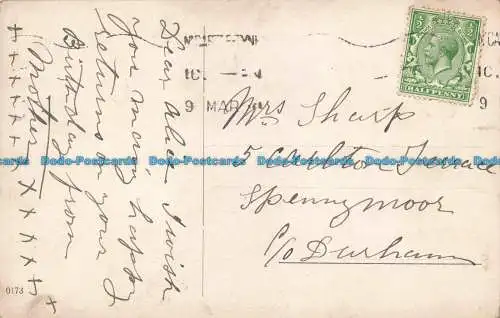 Dear Alice I wish
you many happy
returns on your
Birthday from
Mother
+ + + + x x x x x x x + +
10. — AM
9 MAR
10
9
HALFPENNY
Mrs Sharp
5 Carlton Terrace
Spennymoor
C/o Durham
0173
Dodo-Postcards Dodo-Postcards Dodo-Postcards Dodo-Postcards Dodo-Postcards